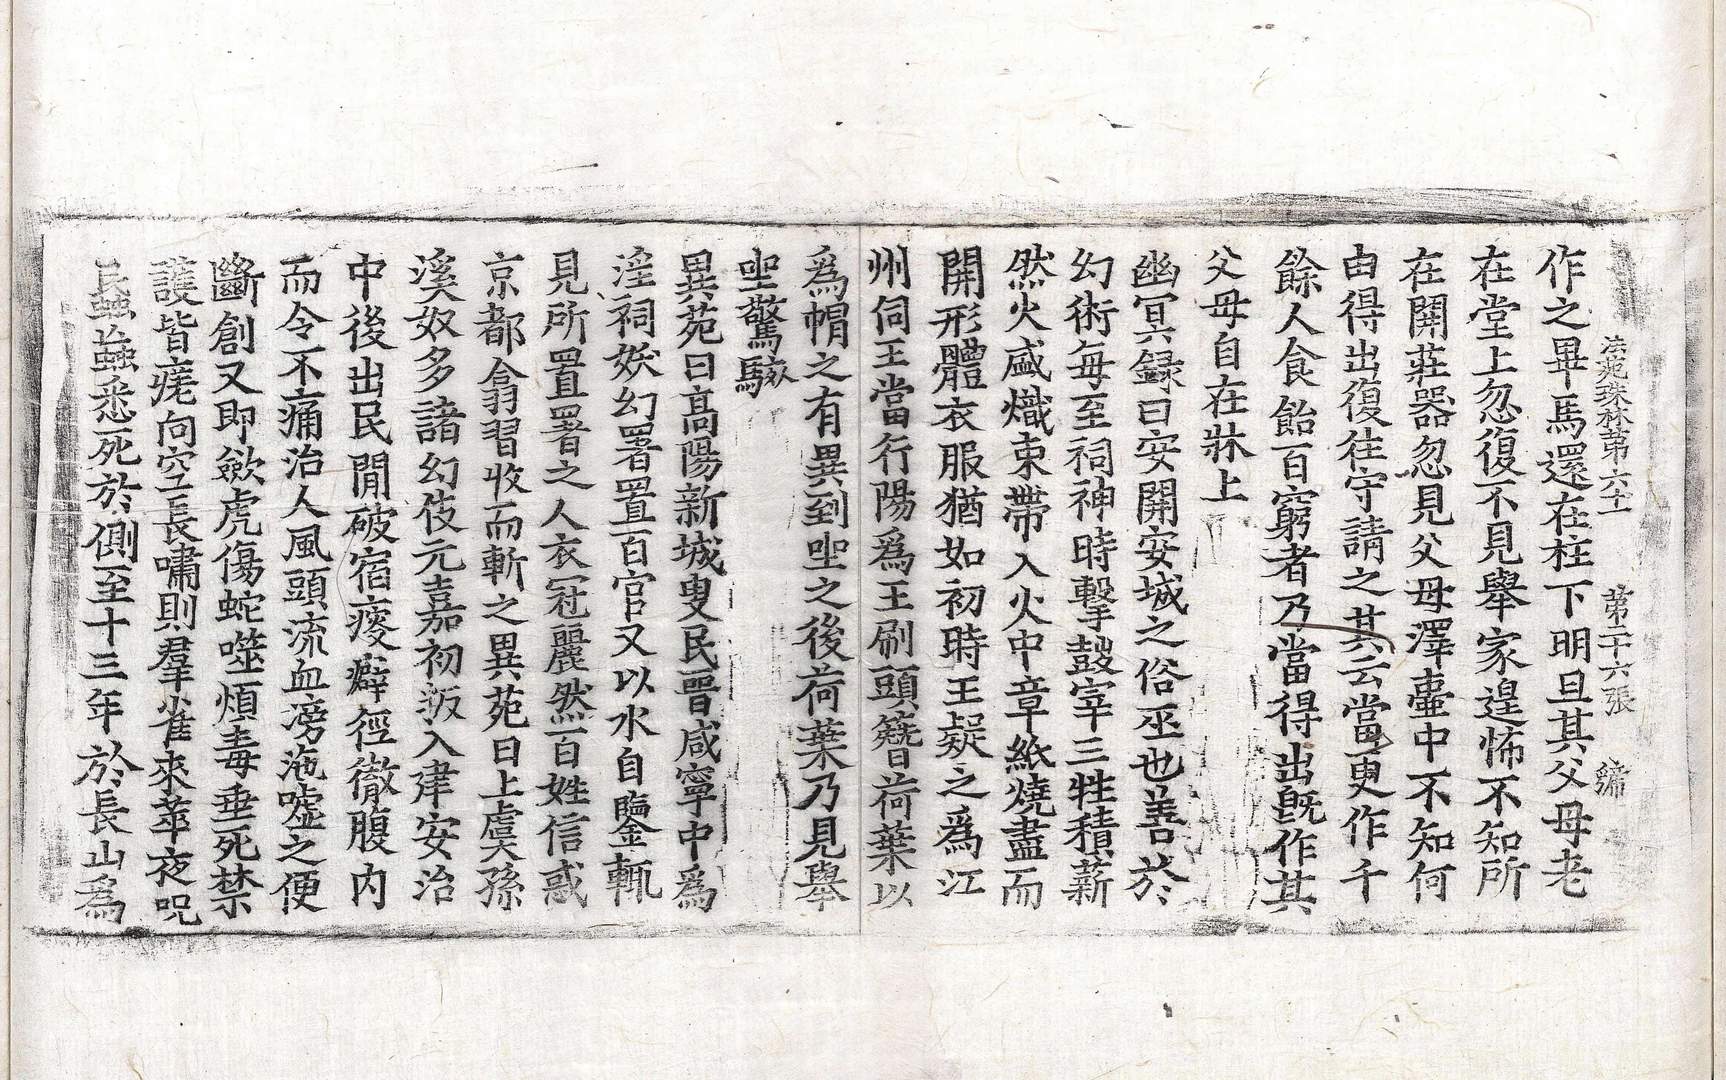 法苑珠林第六十一 第二十六張 緜
作之畢馬還在柱下明旦其父母老
在堂上忽復不見舉家遑怖不知所
在開莊器忽見父母澤壷中不知何
由得出復往守請之其云當更作千
餘人食飴百窮者乃當得出旣作其
父母自在牀上
幽冥録曰安開安城之俗巫也善於
幻術每至祠神時擊鼓宰三牲積薪
然火盛熾束帶入火中章紙燒盡而
開形體衣服猶如初時王凝之爲江
州伺王當行陽爲王刷頭簪荷葉以
爲帽之有異到坐之後荷葉乃見舉
坐驚駭
異苑曰高陽新城叟民晉咸寧中爲
淫祠妖幻署置百官又以水自鑒輒
見所置署之人衣冠麗然百姓信惑
京都翕習收而斬之異苑曰上虞孫
溪奴多諸幻伎元嘉初叛入建安治
中後出民閒破宿瘦癖徑徹腹内
而令不痛治人風頭流血滂沲噓之便
斷創又即斂虎傷蛇噬煩毒垂死禁
護皆瘥向空長嘯則羣雀來萃夜呪
蚊蝱悉死於側至十三年於長山爲